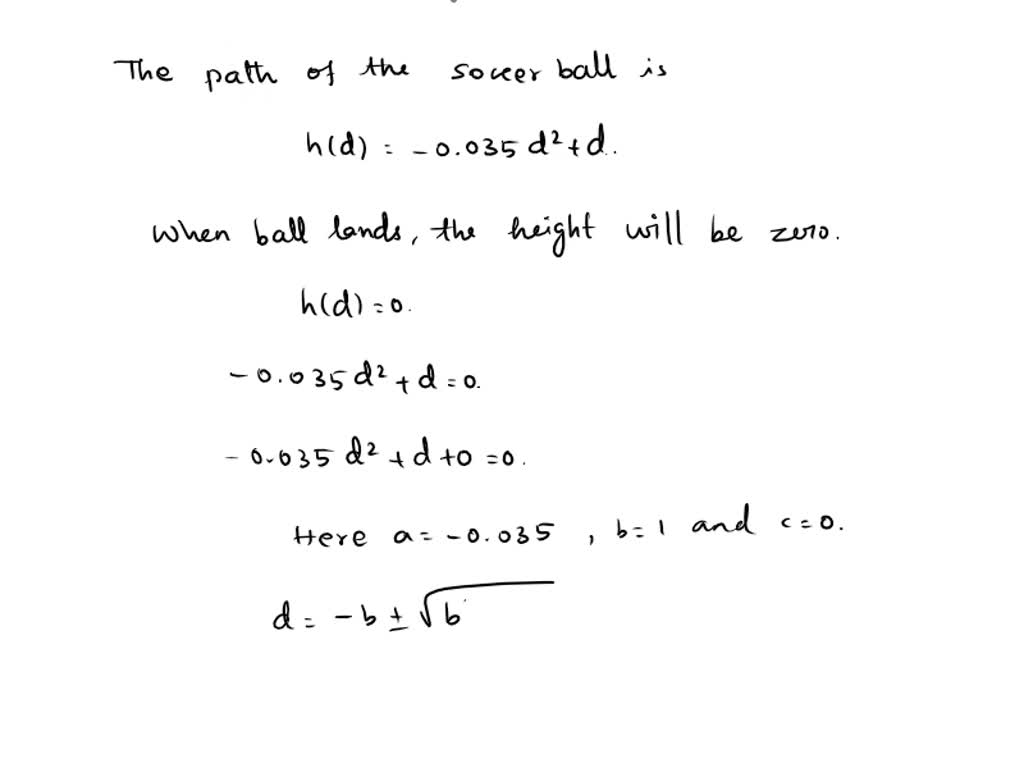 The path of the soccer ball is
h(d) = -0.035 d² + d.
When ball lands, the height will be zero.
h(d) = 0.
-0.035 d² + d = 0.
-0.035 d² + d + 0 = 0.
Here a = -0.035 , b = 1 and c = 0.
d = -b ± √b